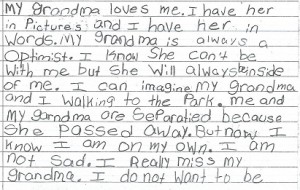 My Grandma loves me. I have her
in Pictures and I have her in
words. My grandma is always a
Optimist. I Know She can't be
with me but she will always be inside
of me. I can imagine my grandma
and I walking to the Park. me and
my garndma are Separatied because
She Passed away. But now I
know I am on my own. I am
not Sad. I Really miss my
grandma. I do not want to be